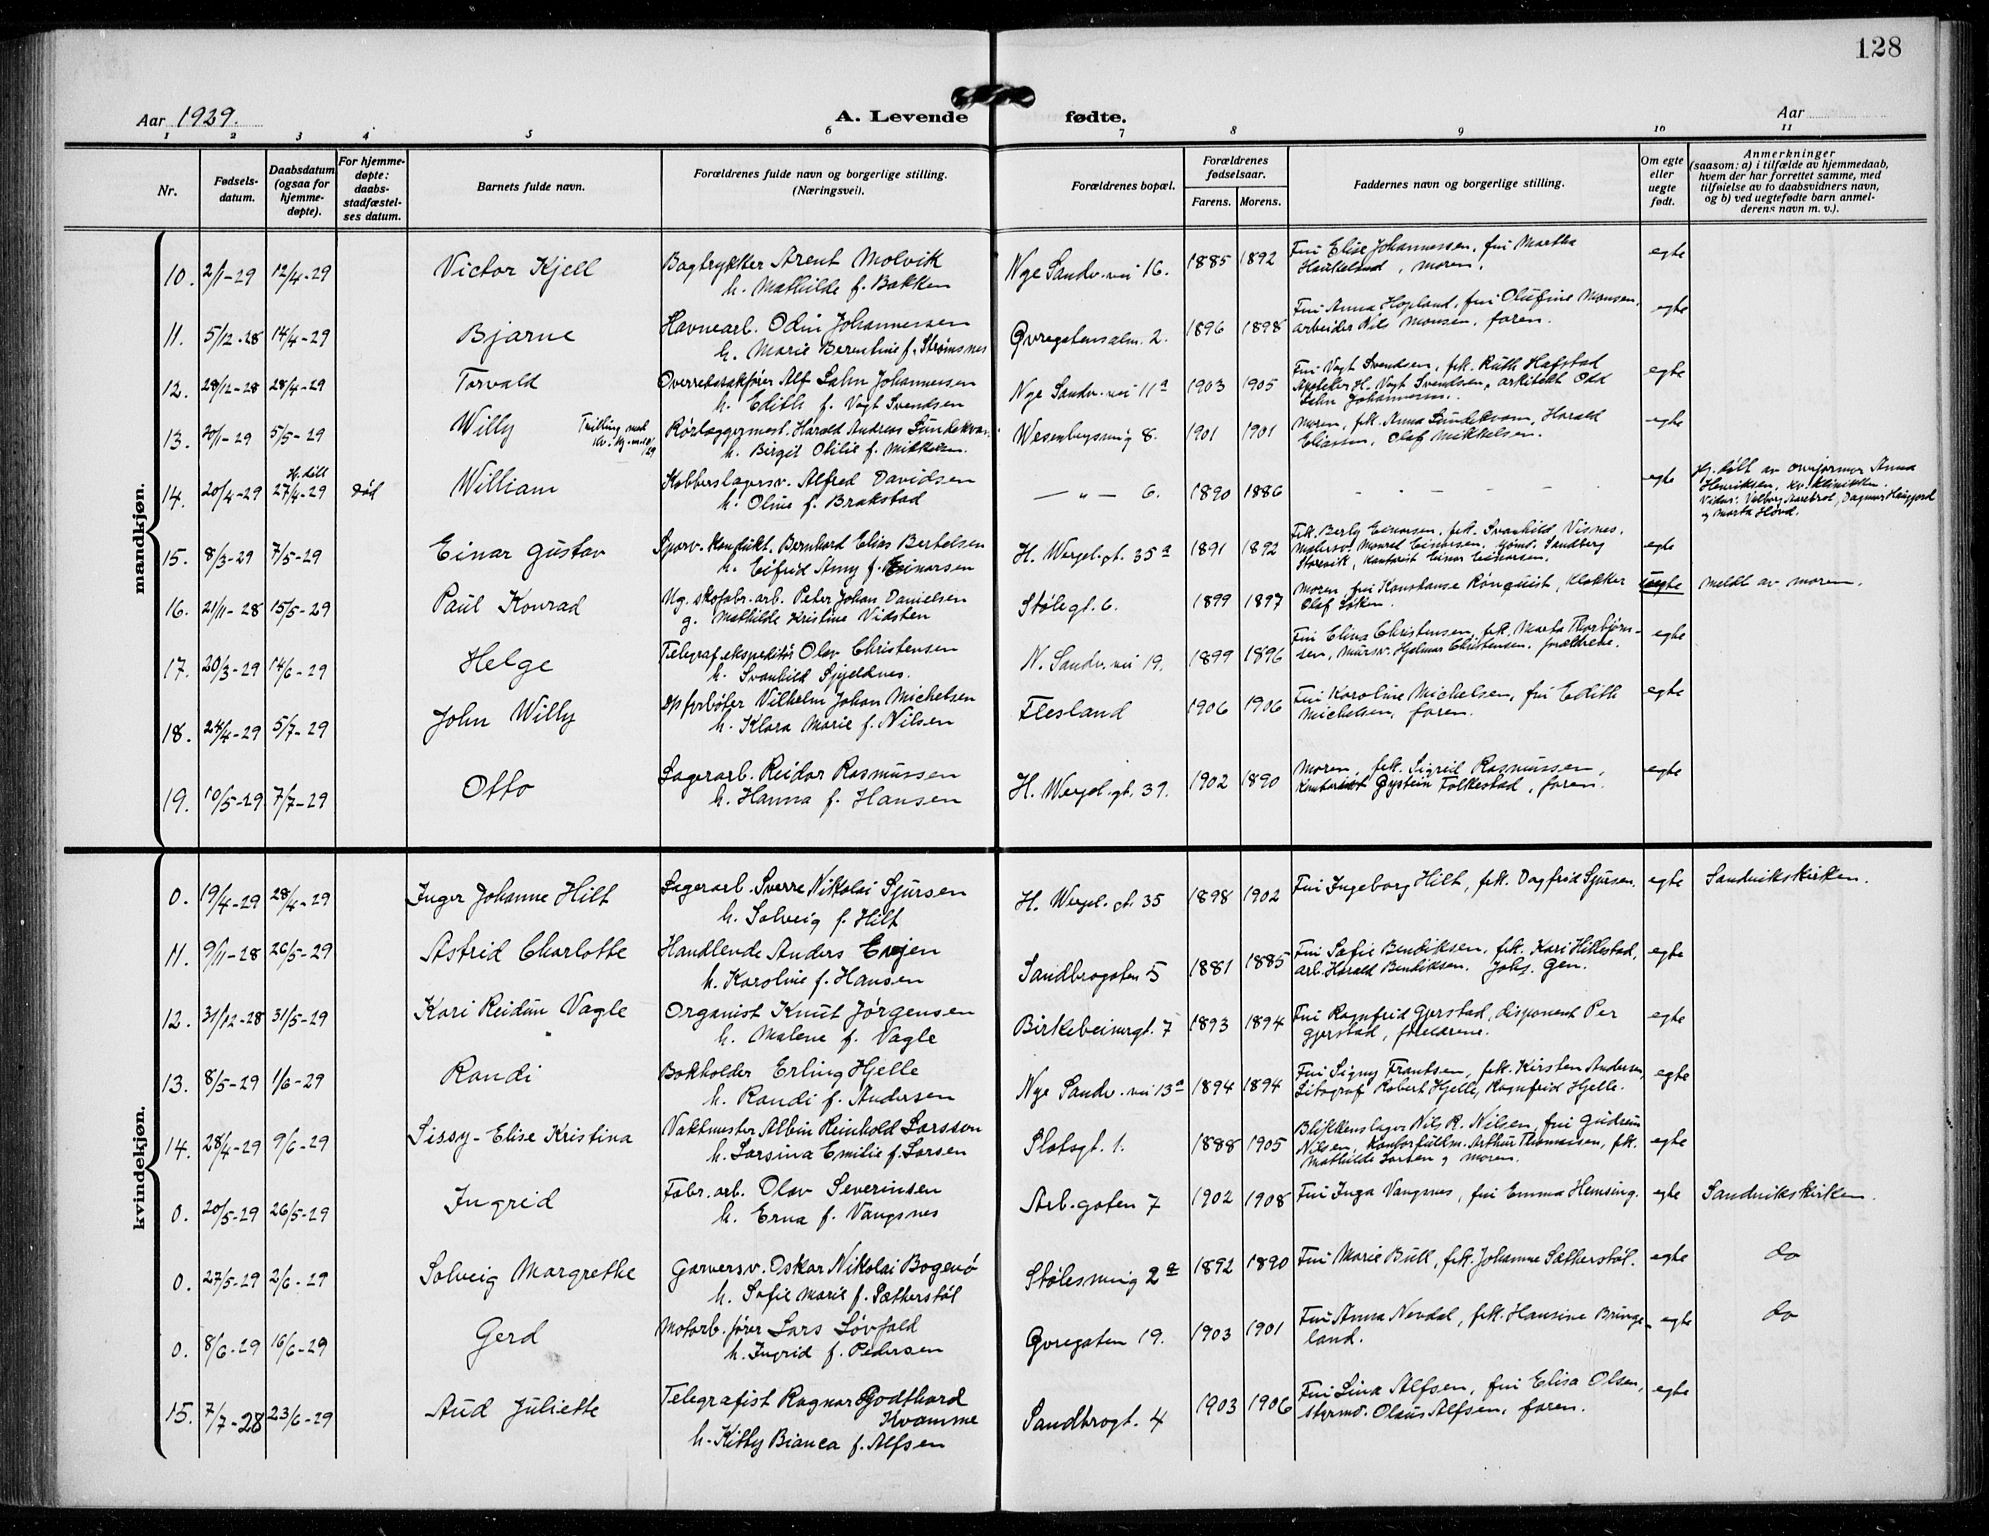 128
Aar 1929.
A. Levende fødte.
Aar
1 2 3 4 5 6 7 8 9 10 11
Nr.
Fødsels-
datum.
Daabsdatum
(ogsaa for
hjemme-
døpte).
For hjemme-
døpte:
daabs-
stadfæstel-
ses datum.
Barnets fulde navn.
Forældrenes fulde navn og borgerlige stilling.
(Næringsvei).
Forældrenes bopæl.
Forældrenes
fødselsaar.
Farens. Morens.
Faddernes navn og borgerlige stilling.
Om egte
eller
uegte
født.
Anmerkninger
(saasom: a) i tilfælde av hjemmedaab,
hvem der har forrettet samme, med
tilføielse av to daabsvidners navn,
og b) ved uegtefødte barn anmel-
derens navn m. v.).
mandkjøn.
10. 2/1-29 12/4-29 Victor Kjell Bogtrykker Arent Molvik Nye Sandv.vei 16. 1885 1892 Fru Elise Johannessen, fru Martha egte
h. Mathilde f. Bakken Haukeland, moren.
11. 5/12-28 14/4-29 Bjarne Havnearb. Odin Johannessen Øvregatensalm. 2. 1896 1898 Fru Anna Hopland, fru Olufine Monsen, egte
h. Marie Berentine f. Strømsnes arbeider Nils Monsen, faren.
12. 28/12-28 28/4-29 Torvald Overretssakfører Alf Lahn Johannessen Nye Sandv.vei 11a 1903 1905 Fru Vogt Svendsen, frk. Ruth Hafstad egte
h. Edith f. Vogt Svendsen Apoteker H. Vogt Svendsen, arkitekt Odd
Lahn Johannessen.
13. 20/1-29 5/5-29 Willy Tvilling med Rørlæggermest. Harald Andreas Wesenbergsmug 8. 1901 1901 Moren, frk. Anna Sundekvam, Harald egte
h. Birgit Otilie f. Mikkelsen. Eliassen, Olaf Mikkelsen.
14. 20/4-29 Hj.døbt 27/4-29 død William Kobberslagersv. Alfred Davidsen — „ — 6. 1890 1886 - - - - - - egte Hj. døbt av Anna
h. Oline f. Brakstad Henriksen, kv.klinikken.
Vidner: Valborg Aarebrot, Dagmar Haugjord
og Marta Hovd.
15. 8/3-29 7/5-29 Einar Gustav Sporv. Kondukt. Bernhard Elias Bertelsen H. Wergel.gt. 35a 1891 1892 Frk. Berly Einarsen, frk. Svanhild Visnes, egte
h. Eifrid Amy f. Einarsen Malersv. Monrad Einarsen, Sandberg
Storevik, kontorist Einar Einarsen.
16. 21/11-28 15/5-29 Paul Konrad Ug. skofabr.arb. Peter Johan Danielsen Stølegt. 6. 1899 1897 Moren, fru Konstanse Rönquist, klokker uegte Meldt av moren.
g. Mathilde Kristine Vidsten Olaf Løken.
17. 20/3-29 14/6-29 Helge Telegrafekspeditør Olav Christensen N. Sandv.vei 19. 1899 1896 Fru Elina Christensen, frk. Marta Thorbjørn- egte
h. Svanhild Gjejeldnes. sen, mursv. Hjelmar Christensen, forældrene.
18. 24/4-29 5/7-29 John Willy Vilhelm Johan Michelsen Flesland 1906 1906 Fru Karoline Michelsen, fru Edith egte
h. Klara Marie f. Nilsen Michelsen, faren.
19. 10/5-29 7/7-29 Otto Lagerarb. Reidar Rasmussen H. Wergel.gt. 39. 1902 1890 Moren, frk. Sigrid Rasmussen, egte
h. Hanna f. Hansen Kontorist Øystein Folkestad, faren.
kvindekjøn.
0. 19/4-29 28/4-29 Inger Johanne Hilt Lagerarb. Sverre Nikolai Sjursen H. Wergel.gt. 35 1898 1902 Fru Ingeborg Hilt, frk. Dagfrid Sjursen. egte Sandvikskirken.
h. Solveig f. Hilt
11. 9/11-28 26/5-29 Astrid Charlotte Handlende Anders Enjen Sandbrogaten 5 1881 1885 Fru Sofie Bendiksen, frk. Kari Hillestad, egte
h. Karoline f. Hansen arb. Harald Bendiksen. Johs. Gen.
12. 31/12-28 31/5-29 Kari Reidun Vagle Organist Knut Jørgensen Birkebeinergt. 7 1893 1894 Fru Ragnfrid Gjerstad, disponent Per egte
h. Malene f. Vagle Gjerstad, forældrene.
13. 8/5-29 1/6-29 Randi Bokholder Erling Hjelle Nye Sandv.vei 13a 1894 1894 Fru Signy Frantsen, frk. Kirsten Andersen, egte
h. Randi f. Andersen Litograf Robert Hjelle, Ragnfrid Hjelle.
14. 28/4-29 9/6-29 Sissy-Elise Kristina Vaktmester Albin Reinhold Larsson Slotsgt. 1. 1888 1905 Blikkenslager Nils R. Nilsen, fru Gudrun egte
h. Larsina Emilie f. Larsen Nilsen, kontorfullm. Arthur Thomassen, frk.
Mathilde Larsen og moren.
0. 20/5-29 26/5-29 Ingrid Fabr.arb. Olav Severinsen Arb.gaten 7 1902 1908 Fru Inga Vangsnes, fru Emma Hemsing. egte Sandvikskirken.
h. Erna f. Vangsnes
0. 27/5-29 2/6-29 Solveig Margrethe Garversv. Oskar Nikolai Bogevø Stølesmug 2a 1892 1890 Fru Marie Bull, frk. Johanne Sætherstøl. egte do
h. Sofie Marie f. Sætherstøl
0. 8/6-29 16/6-29 Gerd Motorb.fører Lars Løvfald Øvregaten 19. 1903 1901 Fru Anna Nevdal, frk. Hansine Bringe- egte do
h. Ingrid f. Pedersen land.
15. 7/7-28 23/6-29 Aud Juliette Telegrafist Ragnar Godthard Sandbrogt. 4 1903 1906 Fru Lina Alfsen, fru Elisa Olsen, egte
Kvamme styrmd. Olaus Alfsen, faren.
h. Kitty Bianca f. Alfsen